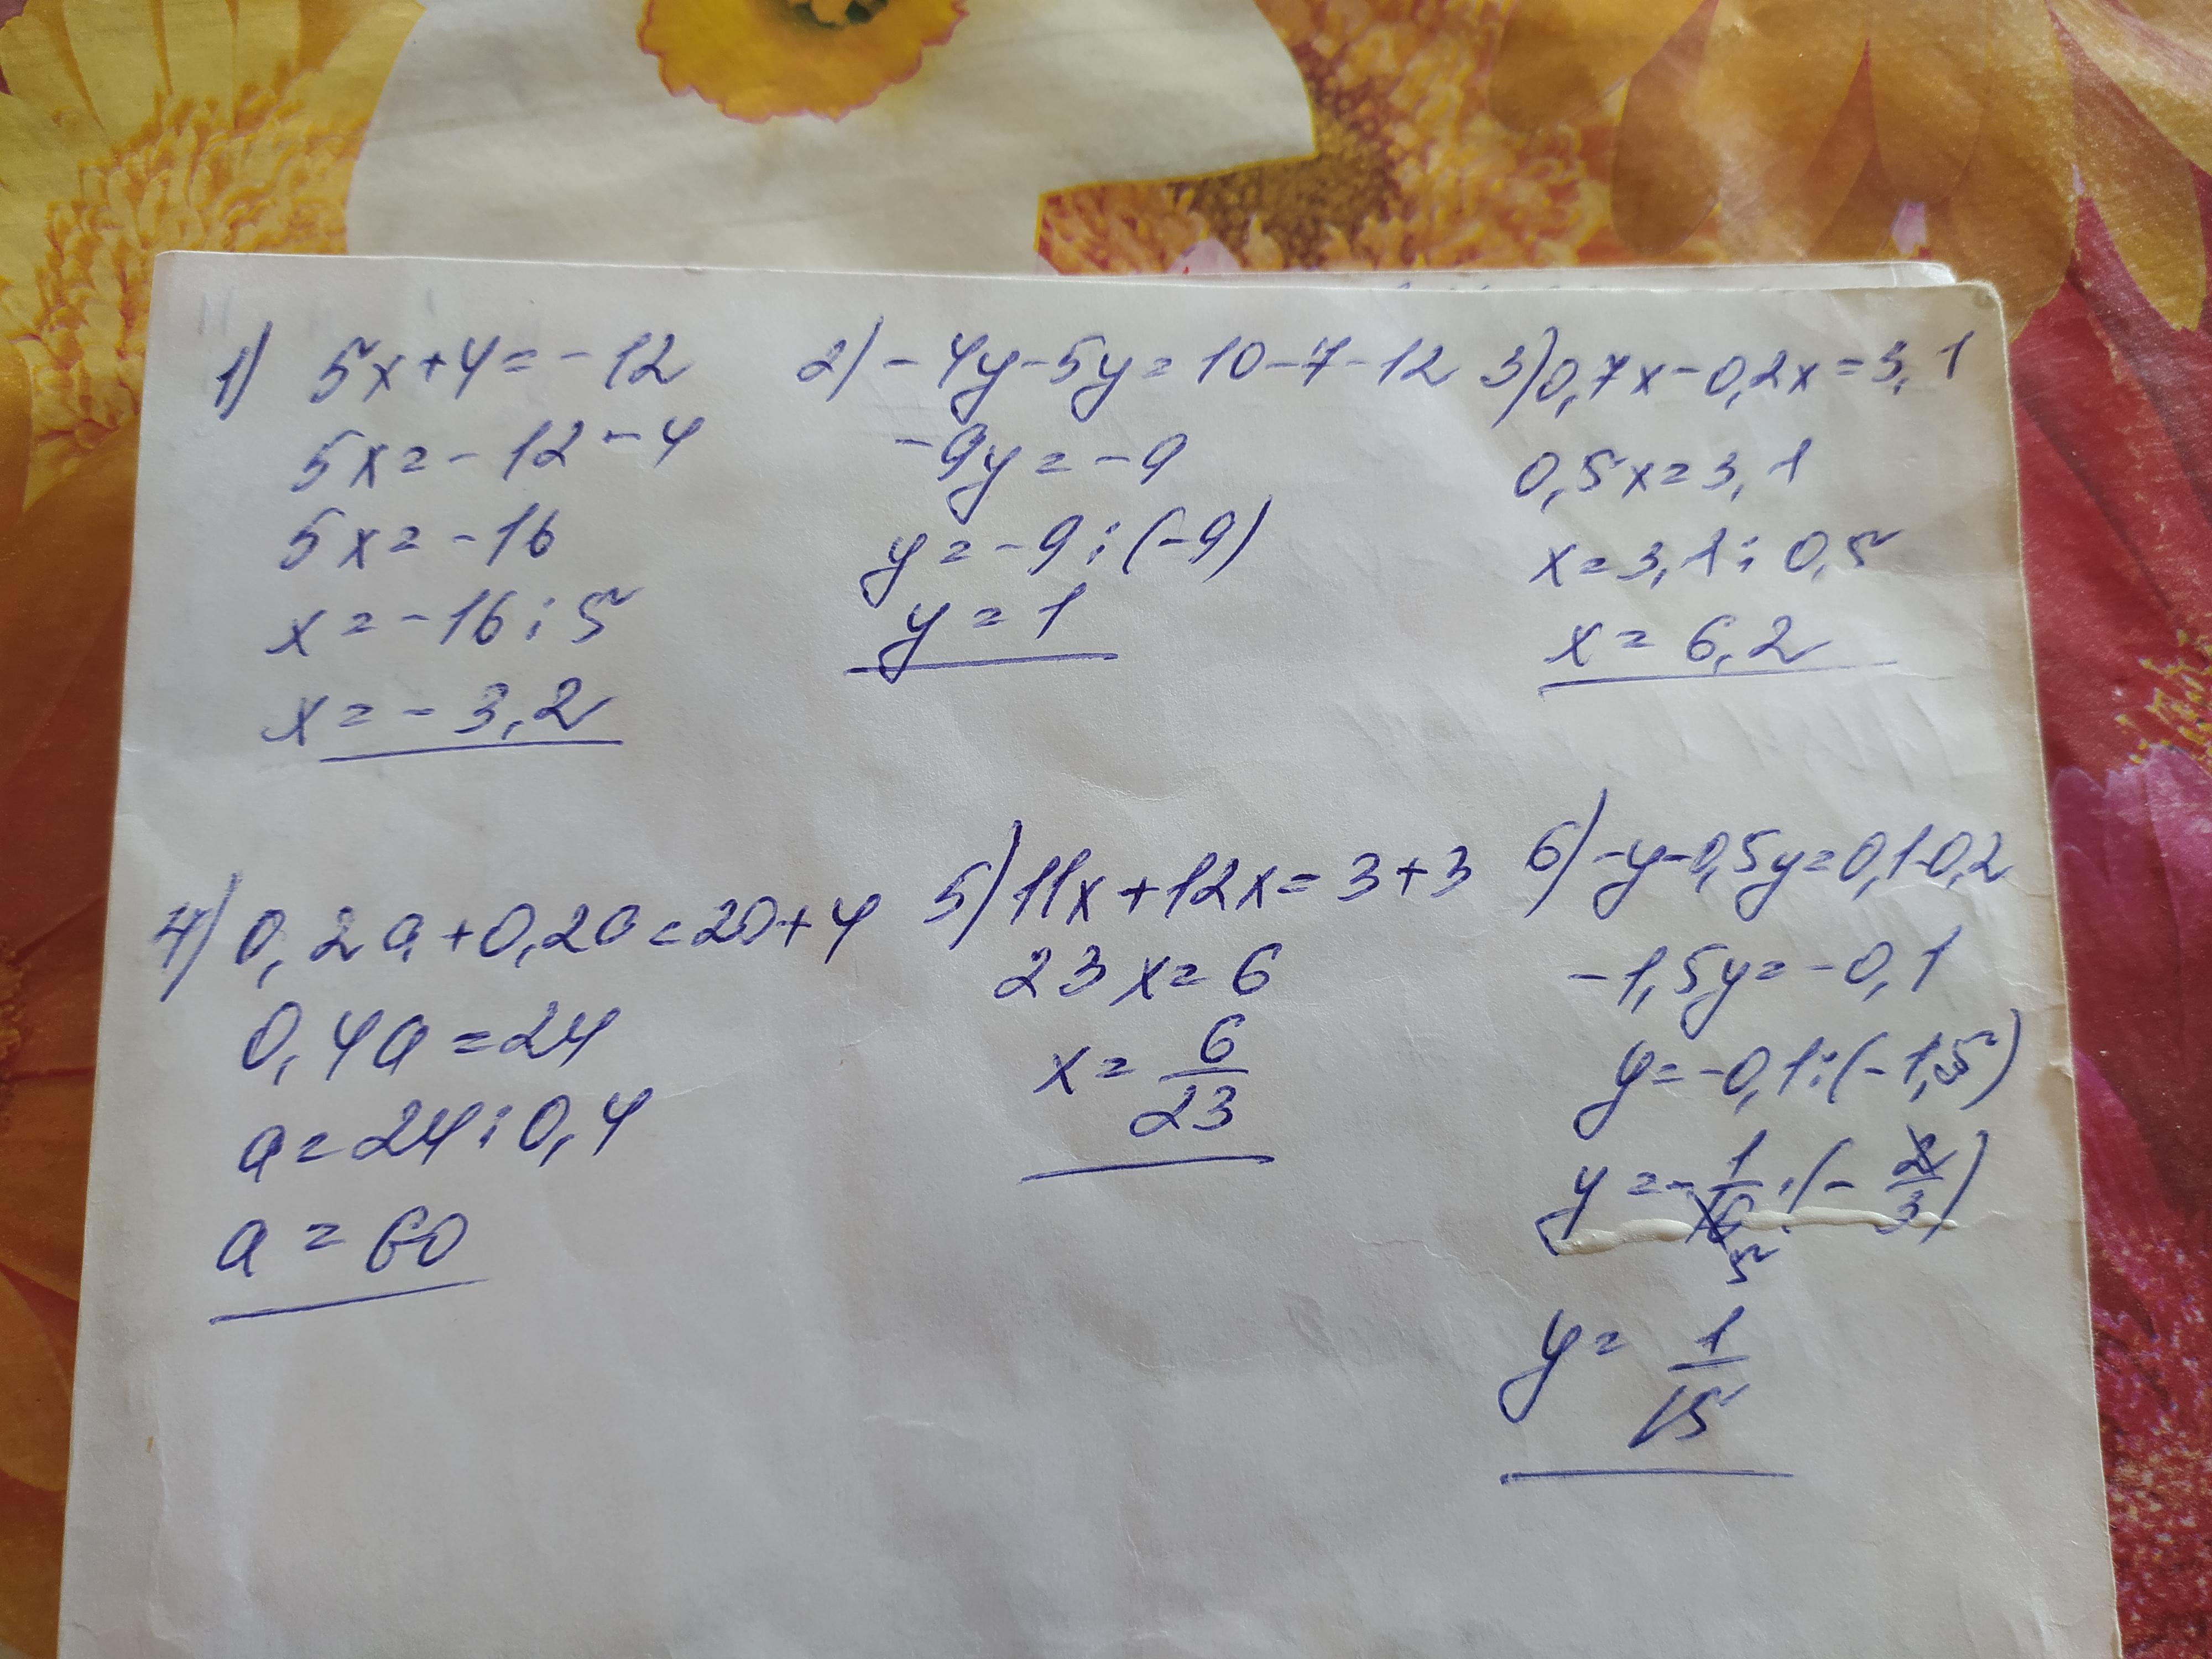 1) 5x+4=-12
5x=-12-4
5x=-16
x=-16:5
x=-3,2
2) -4y-5y=10-7-12
-9y=-9
y=-9:(-9)
y=1
3) 0,7x-0,2x=3,1
0,5x=3,1
x=3,1:0,5
x=6,2
4) 0,2a+0,2a=20+4
0,4a=24
a=24:0,4
a=60
5) 11x+12x=3+3
23x=6
x=6/23
6) -y-0,5y=0,1-0,2
-1,5y=-0,1
y=-0,1:(-1,5)
y=-1/10:(-2/3)
5
y=1/15